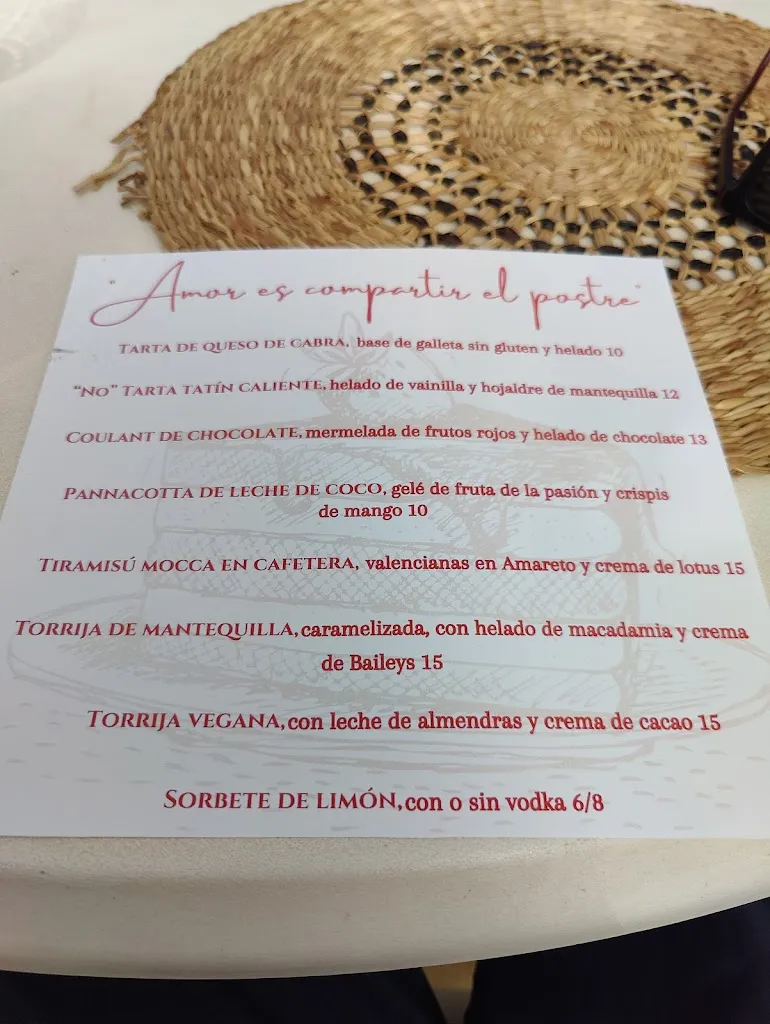 "Amor es compartir el postre"
TARTA DE QUESO DE CABRA, base de galleta sin gluten y helado 10
"NO" TARTA TATÍN CALIENTE, helado de vainilla y hojaldre de mantequilla 12
COULANT DE CHOCOLATE, mermelada de frutos rojos y helado de chocolate 13
PANNACOTTA DE LECHE DE COCO, gelé de fruta de la pasión y crispis
de mango 10
TIRAMISÚ MOCCA EN CAFETERA, valencianas en Amareto y crema de lotus 15
TORRIJA DE MANTEQUILLA, caramelizada, con helado de macadamia y crema
de Baileys 15
TORRIJA VEGANA, con leche de almendras y crema de cacao 15
SORBETE DE LIMÓN, con o sin vodka 6/8